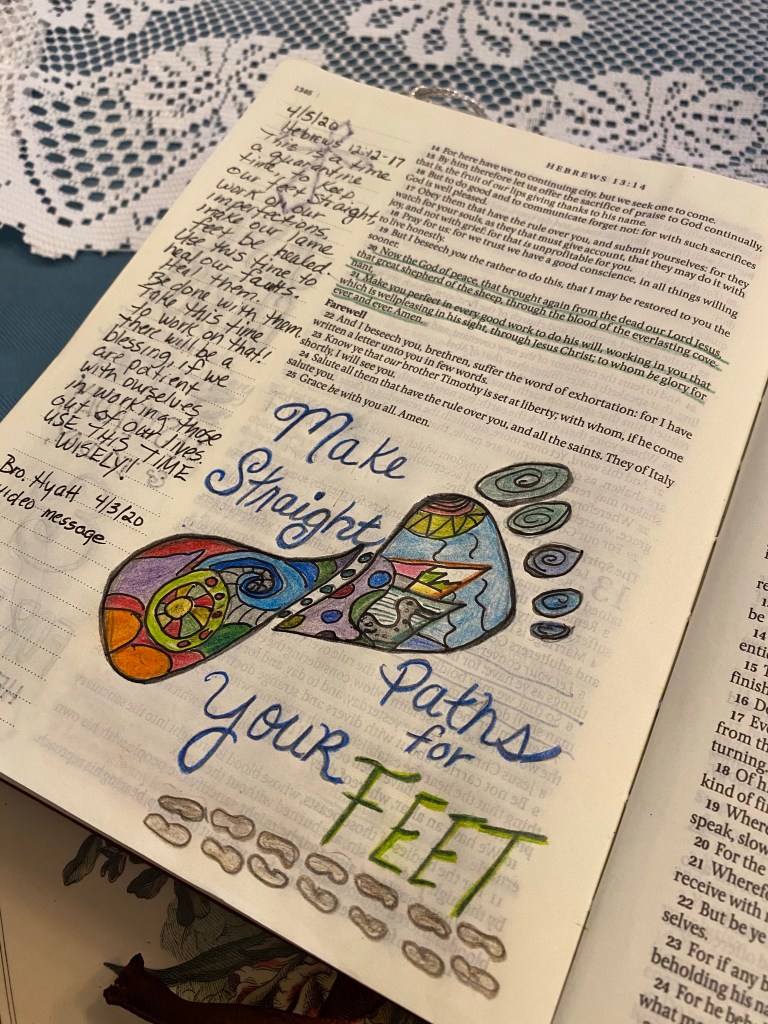 1346
4/5/20
Hebrews 12:12-17
This is a time
a quarantine
time, to keep
our feet straight,
work on our
imperfections,
make our lame
feet be healed.
Use this time to
heal our faults.
Heal them.
Be done with them.
Take this time
to work on that!
There will be a
blessing if we
are patient
with ourselves
in working those
out of our lives.
USE THIS TIME
WISELY!!
Bro. Hyatt 4/3/20
video message
HEBREWS 13:14
14 For here have we no continuing city, but we seek one to come.
15 By him therefore let us offer the sacrifice of praise to God continually,
that is, the fruit of our lips giving thanks to his name.
16 But to do good and to communicate forget not: for with such sacrifices
God is well pleased.
17 Obey them that have the rule over you, and submit yourselves: for they
watch for your souls, as they that must give account, that they may do it with
joy, and not with grief: for that is unprofitable for you.
18 Pray for us: for we trust we have a good conscience, in all things willing
to live honestly.
19 But I beseech you the rather to do this, that I may be restored to you the
sooner.
20 Now the God of peace, that brought again from the dead our Lord Jesus,
that great shepherd of the sheep, through the blood of the everlasting cove-
nant,
21 Make you perfect in every good work to do his will, working in you that
which is wellpleasing in his sight, through Jesus Christ; to whom be glory for
ever and ever. Amen.
Farewell
22 And I beseech you, brethren, suffer the word of exhortation: for I have
written a letter unto you in few words.
23 Know ye that our brother Timothy is set at liberty; with whom, if he come
shortly, I will see you.
24 Salute all them that have the rule over you, and all the saints. They of Italy
salute you.
25 Grace be with you all. Amen.
Make
Straight
Paths
for
YOUR
FEET
be
14
enti
15 T
finish
16 De
17 Eve
from th
turning.
18 Of hi
kind of fi
19 Where
speak, slow
20 For the
21 Wherefo
receive with
22 But be ye
selves.
23 For if any b
beholding his na
24 For he beh
what m